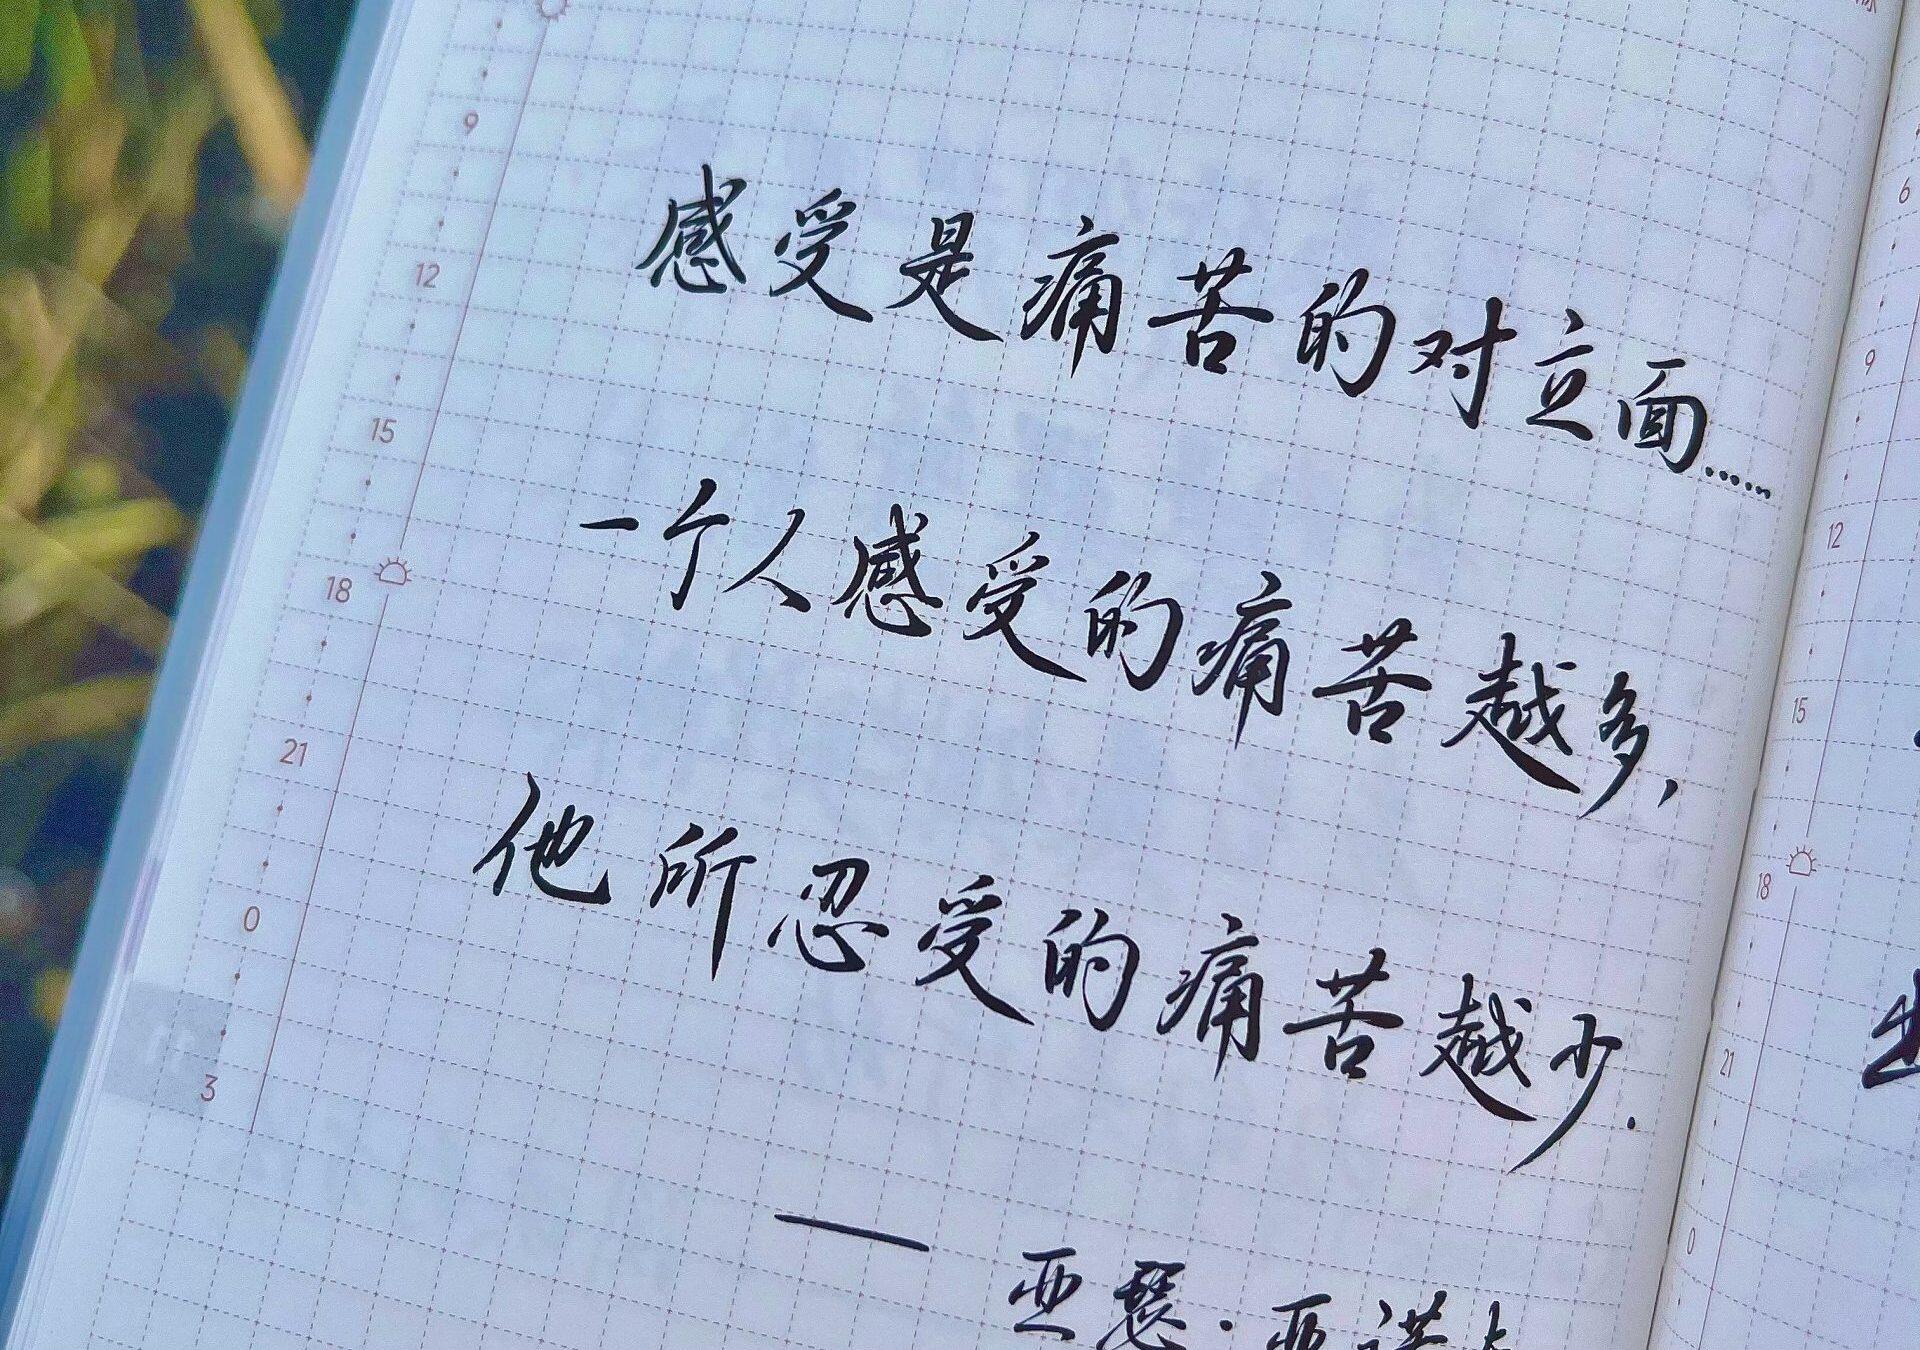 感受是痛苦的对立面……
一个人感受的痛苦越多,
他所忍受的痛苦越少.
—— 亚瑟·亚诺夫
9
12
15
18
21
0
3
6
9
12
15
18
21
0